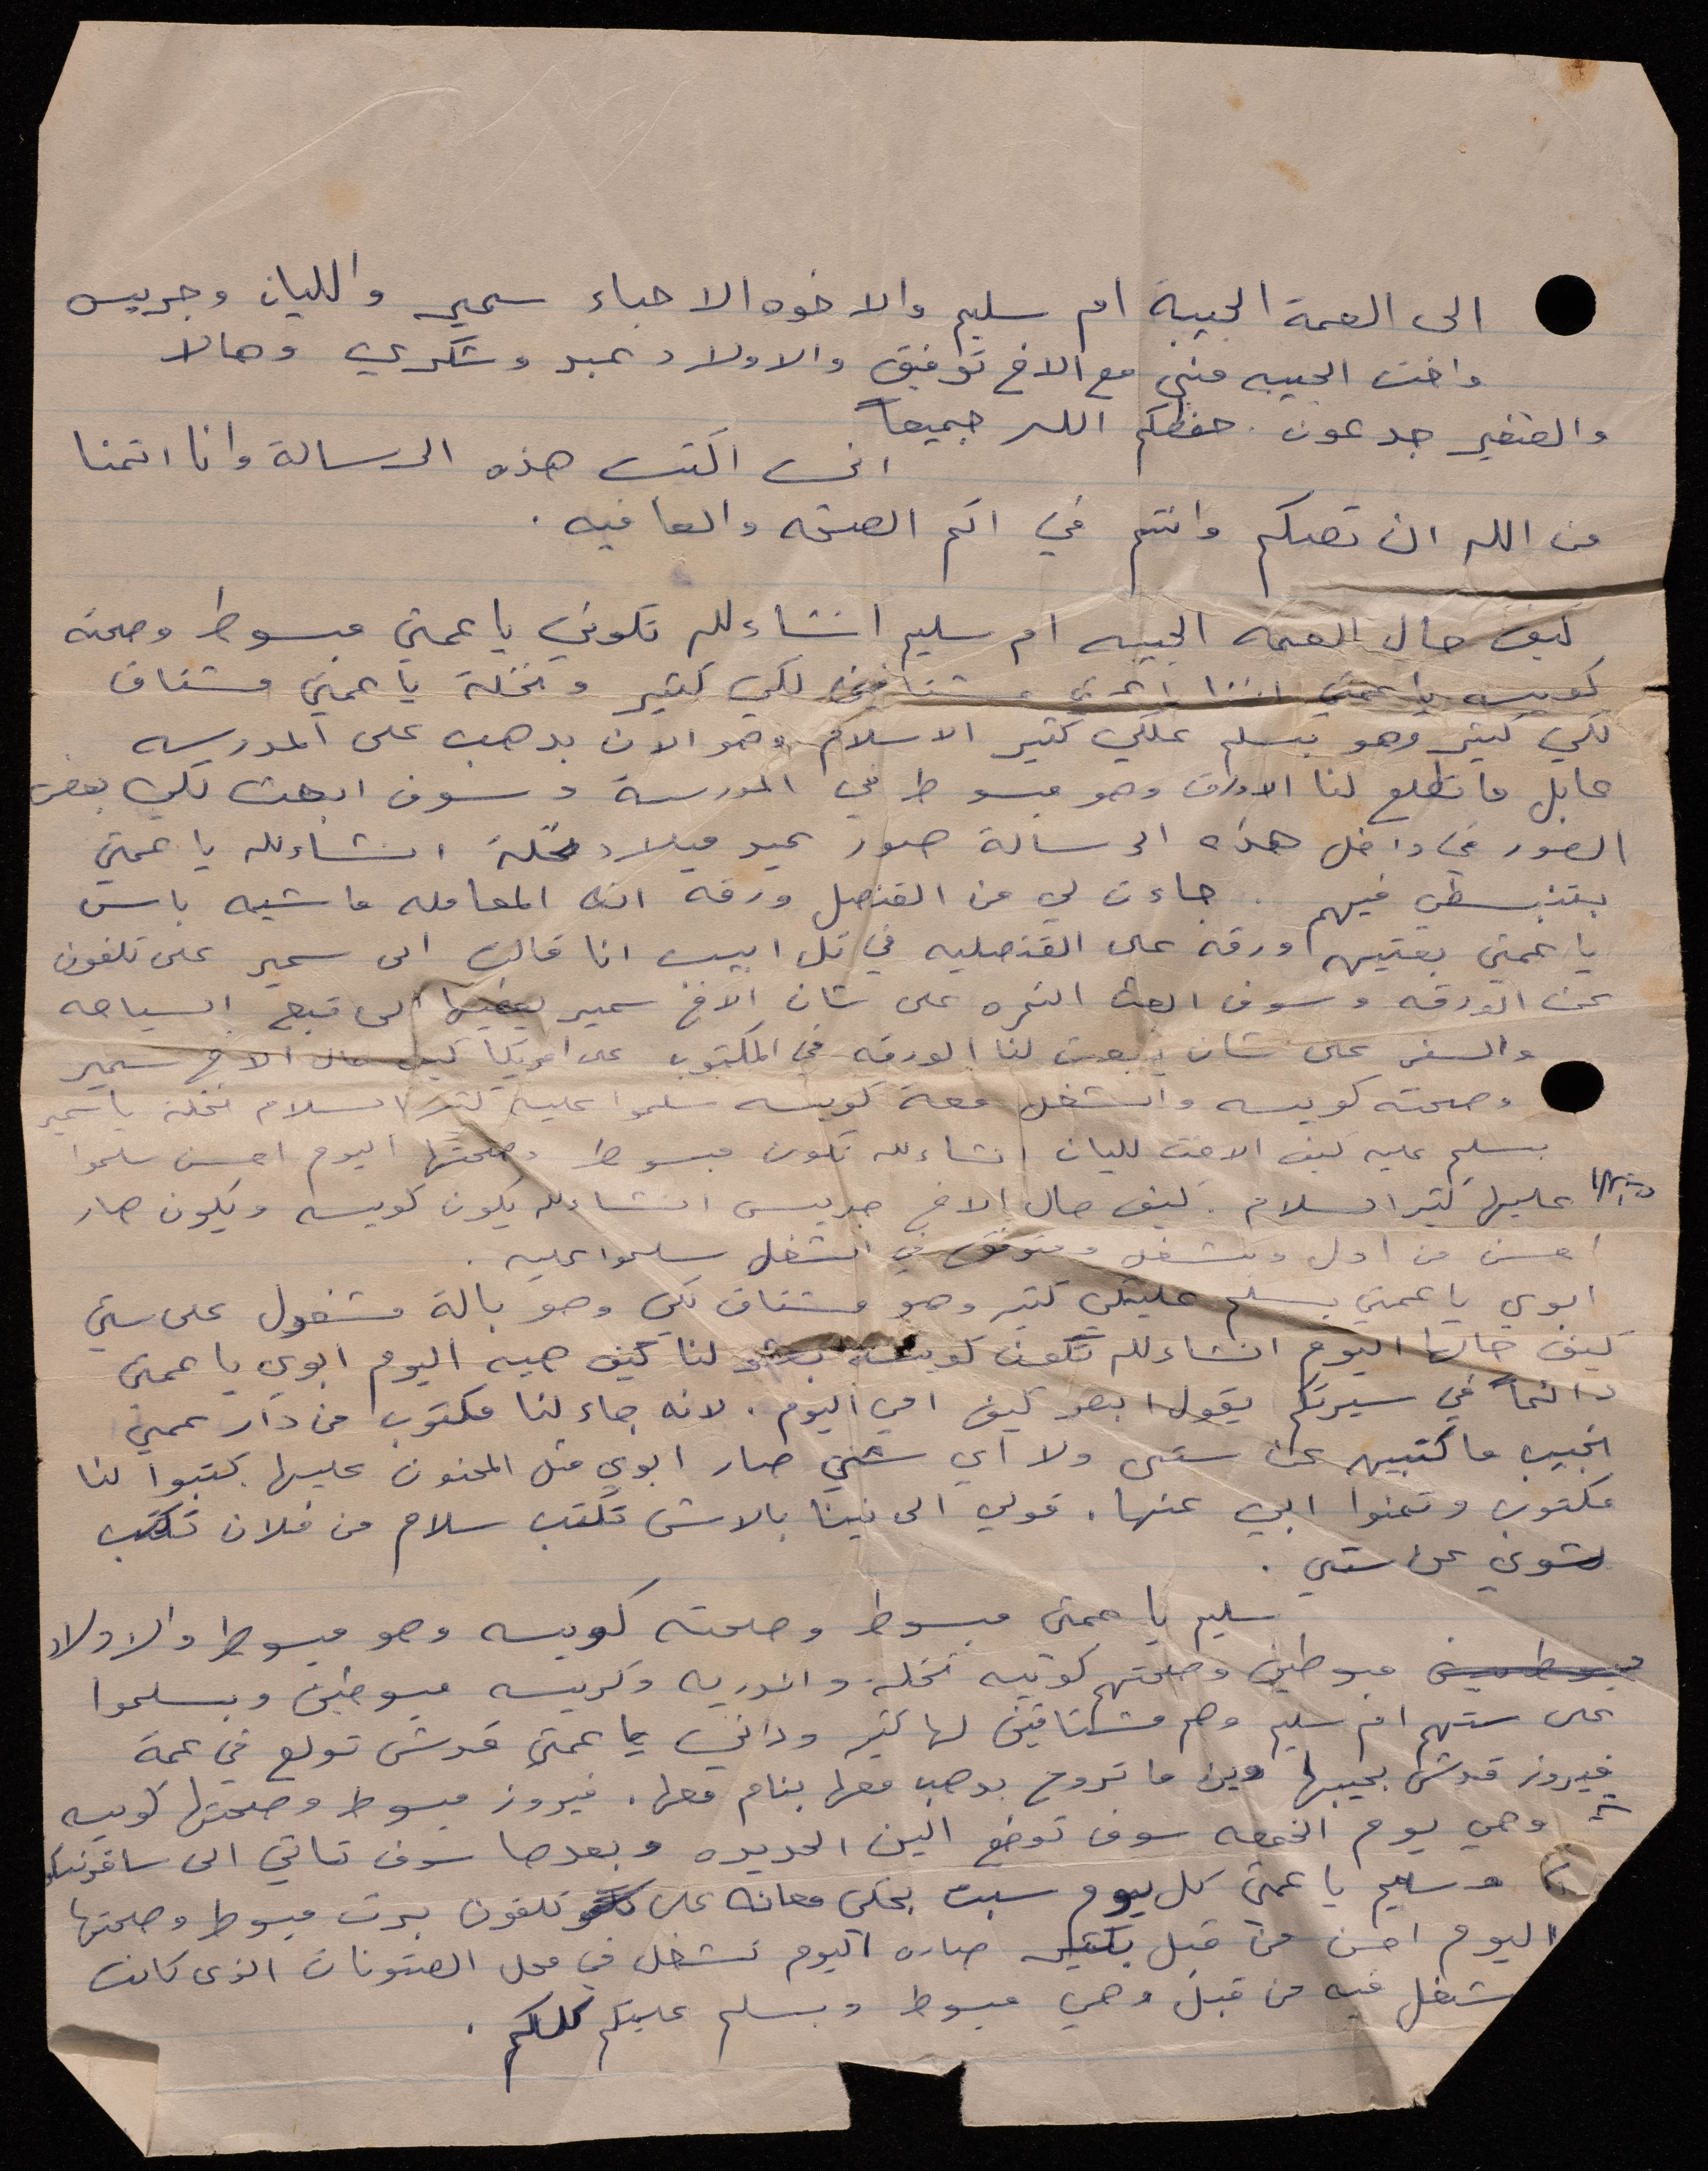 الى العمة الحبيبة ام سليم والاخوه الاحباء سمير والليان وجريس
واخت الحبيبه منى مع الاخ توفيق والاولاد عبد وشكري وهالا
والصغير جدعون . حفظكم الله جميعاً
اني اكتب هذه الرسالة وانا اتمنا
من الله ان تصلكم وانتم في اتم الصحه والعافيه .
كيف حال العمه الحبيبه ام سليم انشاءلله تكوني يا عمتي مبسوط وصحته
كويسه يا عمتي اننا مشتاقين لكي كتير ونخلة يا عمتي مشتاق
لكي كتير وهو بسلم علكي كتير الاسلام وهو الان بدهب على المدرسه
عابل ما تطلع لنا الاوراق وهو مبسوط في المدرسة وسوف ابعت لكي بعض
الصور في داخل هذه الرسالة صور عيد ميلاد نخلة انشاءلله يا عمتي
بتنبسطي فيهم . جاءت لي من القنصل ورقه انه المعامله ماشيه باس
يا عمتي بعتيهم اورقه على القنصليه في تل ابيب انا قالت الى سمير على تلفون
عن الورقه وسوف ابعث النمره على شان الاخ سمير الى قبع السياحه
والسفر على شان يبعت لنا الورقه في المكتوب على امريكا كيف حال الاخ سمير
وصحته كويسه والشغل معة كويسه سلموا عليه كتير السلام نخلة يا سمير
بسلم عليه كيف الاخت لليان انشاءلله تكون مبسوط وصحتها اليوم احسن سلموا
عليها كتير السلام . كيف حال الاخ جريس انشاءلله يكون كويسه ويكون صار
احسن من اول وبشغل ومتوفق في الشغل سلموا عليه .
ابوي يا عمتي بسلم عليكي كتير وهو مشتاق لكي وهو بالة مشغول على ستي
كيف حالها اليوم انشاءلله تكون كويسه لنا كيف هيه اليوم ابوي يا عمتي
دائماً في سيرتكم يقول ابصر كيف امي اليوم . لانه جاء لنا مكتوب من دار عمي
نجيب ما كتبيهم عن ستي ولا اي شي صار ابوي متل المجنون عليها كتبوا لنا
مكتوب وتمنوا ابي عنها . قولي الى نينا بالاش تكتب سلام من فلان تكتب
شوي عن ستي .
سليم يا عمتي مبسوط وصحته كويسه وهو مبسوط والاولاد
مبوطين وصحتهم كويسه نخلة واندريه وكريسه مبوطين وبسلموا
على ستهم ام سليم وهم مشتاقين لها كتير وداني يا عمتي قدش تولع في عمة
فيروز قدش بحيبها وين ما تروح بدهب معها بنام معها . فيروز مبسوط وصحتها كويسه
وهي يوم الجمعه سوف توضع الين الحديده وبعدها سوف تاتي الى
وسليم يا عمتي كل يوم سبت بحكي معانه على تلفون برت مبسوط وصحتها
اليوم احسن من قبل بكتير صاره اليوم تشغل في محل الصتونات الذى كانت
تشغل فيه من قبل وهي مبسوط وبسلم عليكم كلكم .